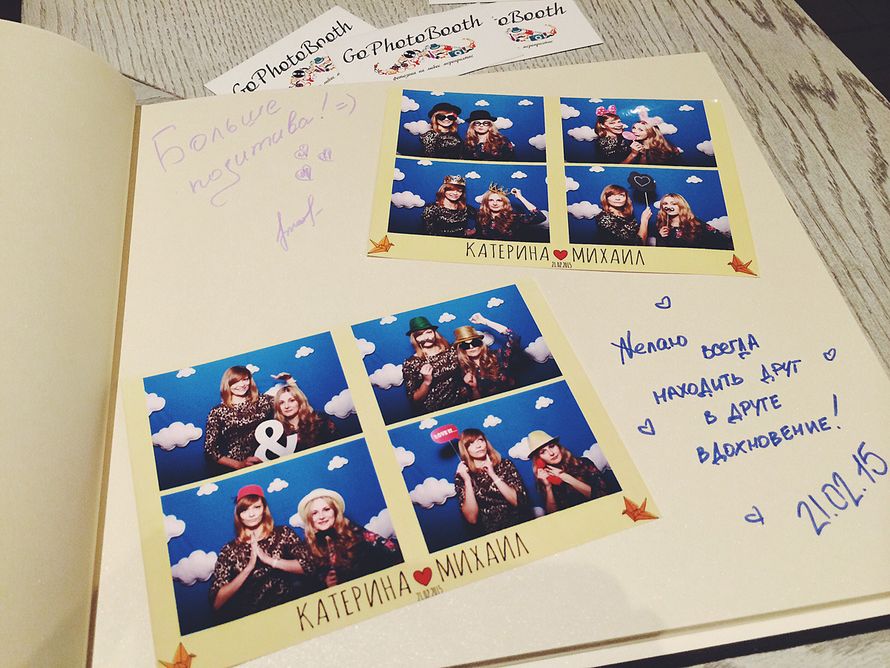 GoPhotoBooth
GoPhotoBooth
toBooth
Больше
позитива! =)
КАТЕРИНА МИХАИЛ
21.02.2015
Желаю всегда
находить друг
в друге
вдохновение!
21.02.15
&
КАТЕРИНА МИХАИЛ
21.02.2015